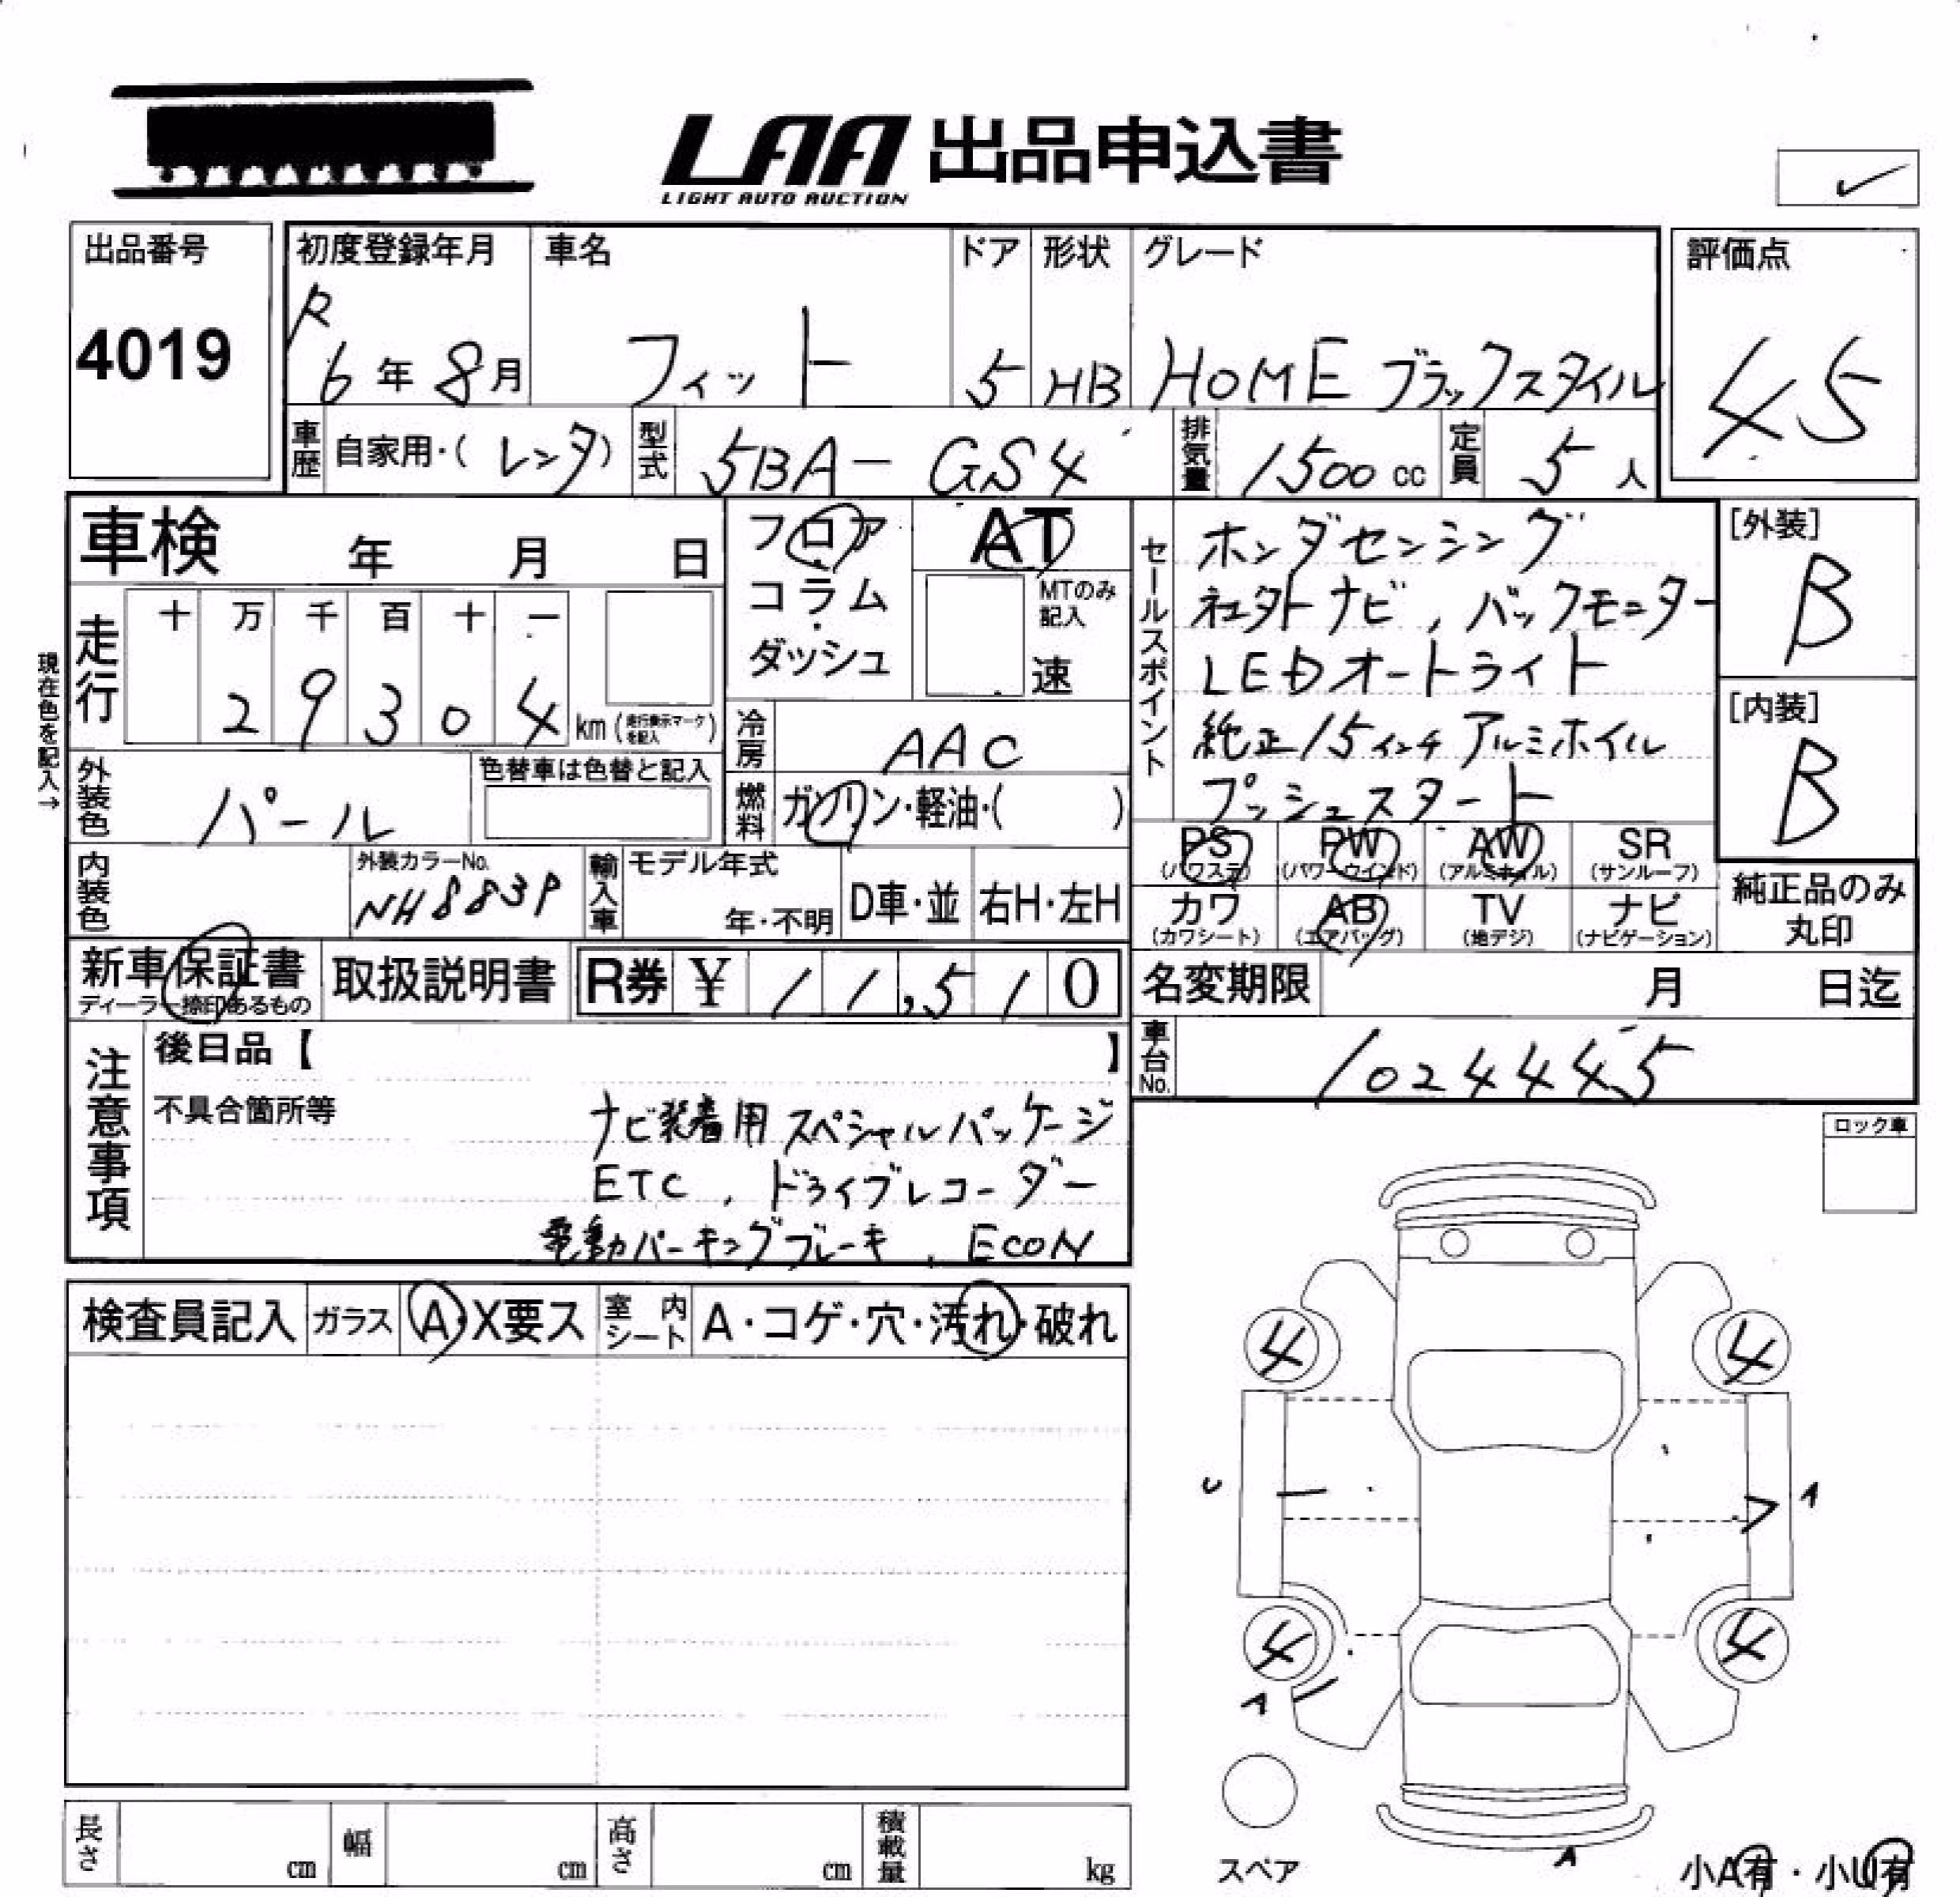 LAA 出品申込書
LIGHT AUTO AUCTION
出品番号
4019
初度登録年月
R
6年8月
車名
フィット
ドア
5
形状
HB
グレード
HOME ブラックスタイル
評価点
45
車歴 自家用・(レンタ)
型式 5BA-GS4
排気量 1500 cc
定員 5人
車検 年 月 日
フロア
コラム
ダッシュ
AT
MTのみ記入
速
セールスポイント
ホンダセンシング
社外ナビ, バックモニター
LEDオートライト
純正15インチ アルミホイル
プッシュスタート
[外装]
B
[内装]
B
現在色を記入→
走行
十 万 千 百 十 一
2 9 3 0 4 km(走行表示マークを記入)
冷房 AAC
燃料 ガソリン・軽油・( )
外装色 パール
色替車は色替と記入
内装色
外装カラーNo.
NH883P
輸入車
モデル年式
年・不明
D車・並
右H・左H
PS
(パワステ)
PW
(パワーウインド)
AW
(アルミホイル)
SR
(サンルーフ)
カワ
(カワシート)
AB
(エアバッグ)
TV
(地デジ)
ナビ
(ナビゲーション)
純正品のみ
丸印
新車保証書
ディーラー捺印あるもの
取扱説明書
R券 ¥ 11,510
名変期限 月 日迄
車台No. 1024445
注意事項
後日品【 】
不具合箇所等
ナビ装着用スペシャルパッケージ
ETC, ドライブレコーダー
電動パーキングブレーキ, ECON
ロック車
検査員記入
ガラス A・X要ス
室内シート A・コゲ・穴・汚れ・破れ
4 4
U A
4 4
A
A
スペア
小A有・小U有
長さ cm
幅 cm
高さ cm
積載量 kg